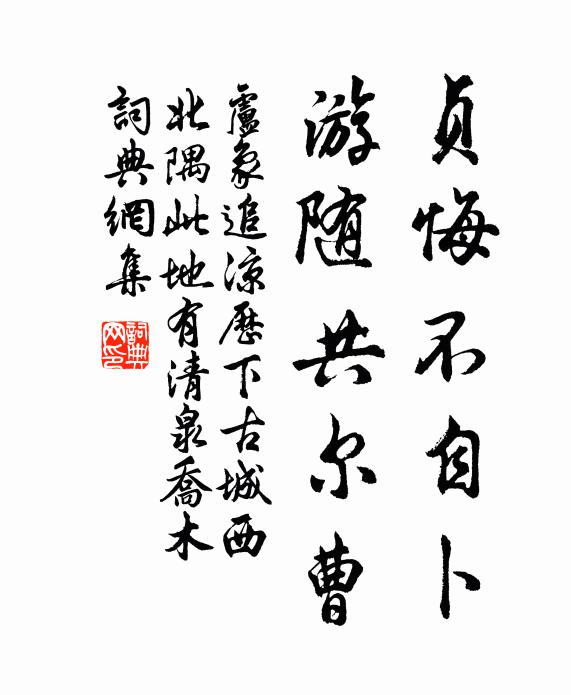 贞悔不自卜
游随共尔曹
盧象追涼歷下古城西
北隅此地有清泉喬木
詞典網集
詞典网印